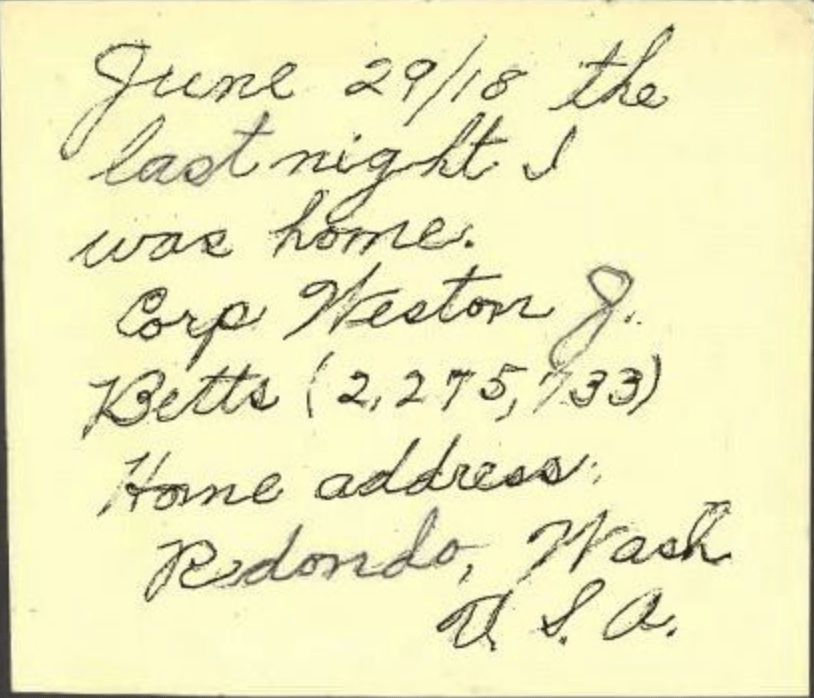 June 29/18 the
last night I
was home.
Corp Weston J.
Betts (2,275,733)
Home address:
Redondo, Wash
U. S. A.